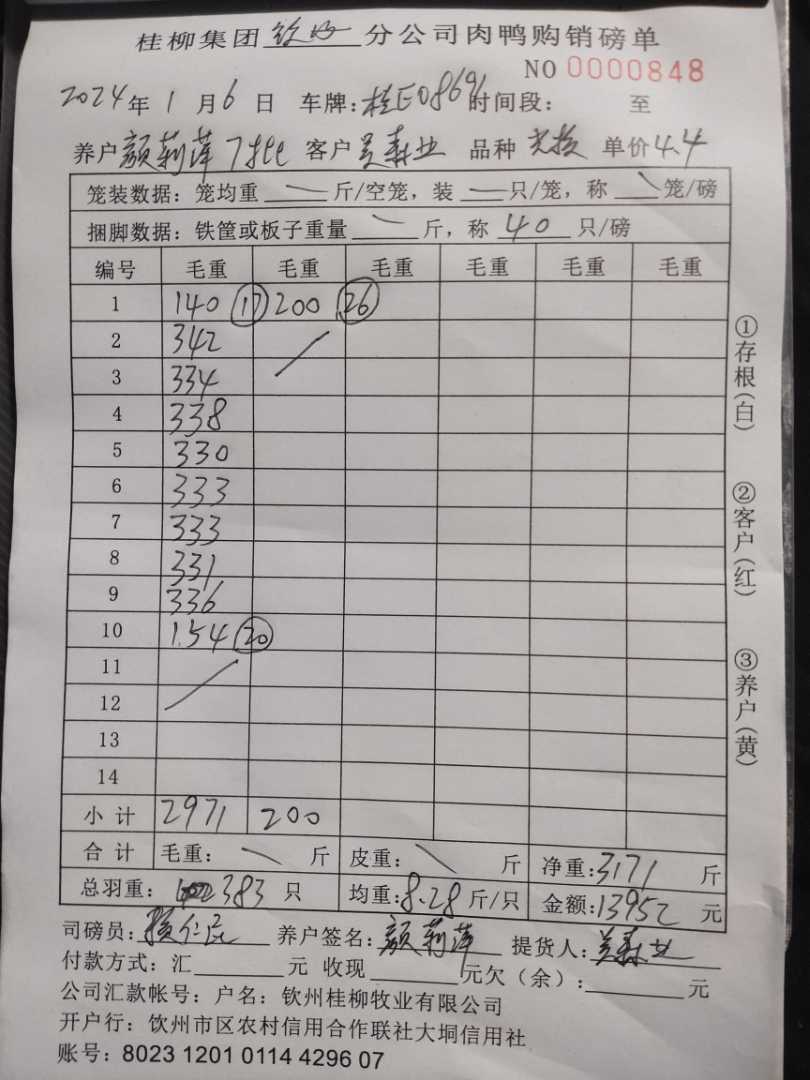 桂柳集团 钦州 分公司肉鸭购销磅单
NO 0000848
2024年 1 月 6 日 车牌:桂E08691 时间段: 至
养户 颜莉萍 7批 客户 吴森业 品种 单价 4.4
笼装数据:笼均重 — 斤/空笼,装 — 只/笼,称 — 笼/磅
捆脚数据:铁筐或板子重量 — 斤,称 40 只/磅
编号 毛重 毛重 毛重 毛重 毛重 毛重
1 140 ⑰ 200 ㉖
2 342
3 334
4 338
5 330
6 333
7 333
8 331
9 336
10 1.54 ⑳
11
12
13
14
小计 2971 200
合计 毛重: — 斤 皮重: — 斤 净重:3171 斤
总羽重: 383 只 均重:8.28 斤/只 金额:13952 元
司磅员: 养户签名:颜莉萍 提货人:吴森业
付款方式:汇 元 收现 元欠(余): 元
公司汇款帐号:户名:钦州桂柳牧业有限公司
开户行:钦州市区农村信用合作联社大垌信用社
账号:8023 1201 0114 4296 07
①存根(白)
②客户(红)
③养户(黄)